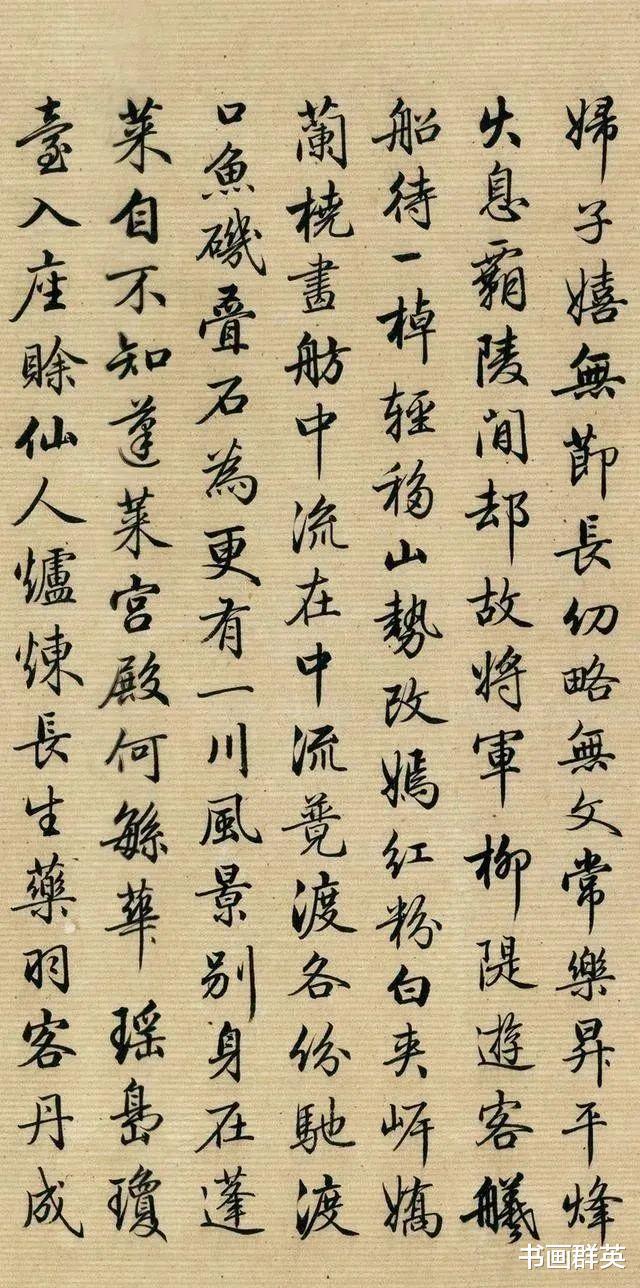 婦子嬉無節長幼略無文常樂昇平烽
火息霸陵閒却故將軍柳隄遊客艤
船待一棹輕移山勢改嫣紅粉白夾岍嬌
蘭橈畫舫中流在中流競渡各份馳渡
口魚磯疊石為更有一川風景别身在蓬
莱自不知蓬莱宫殿何緐華瑶島瓊
臺入座賒仙人爐煉長生藥羽客丹成
书画群英